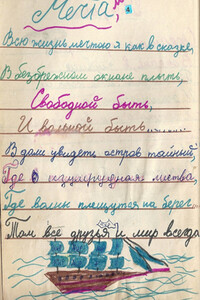 Мечта
Всю жизнь мечтаю я как в сказке,
В безбрежном океане плыть,
Свободной быть,
И вольной быть......
В дали увидеть остров тайный,
Где изумрудная листва,
Где волны плещутся на берег
Там все друзья и мир всегда